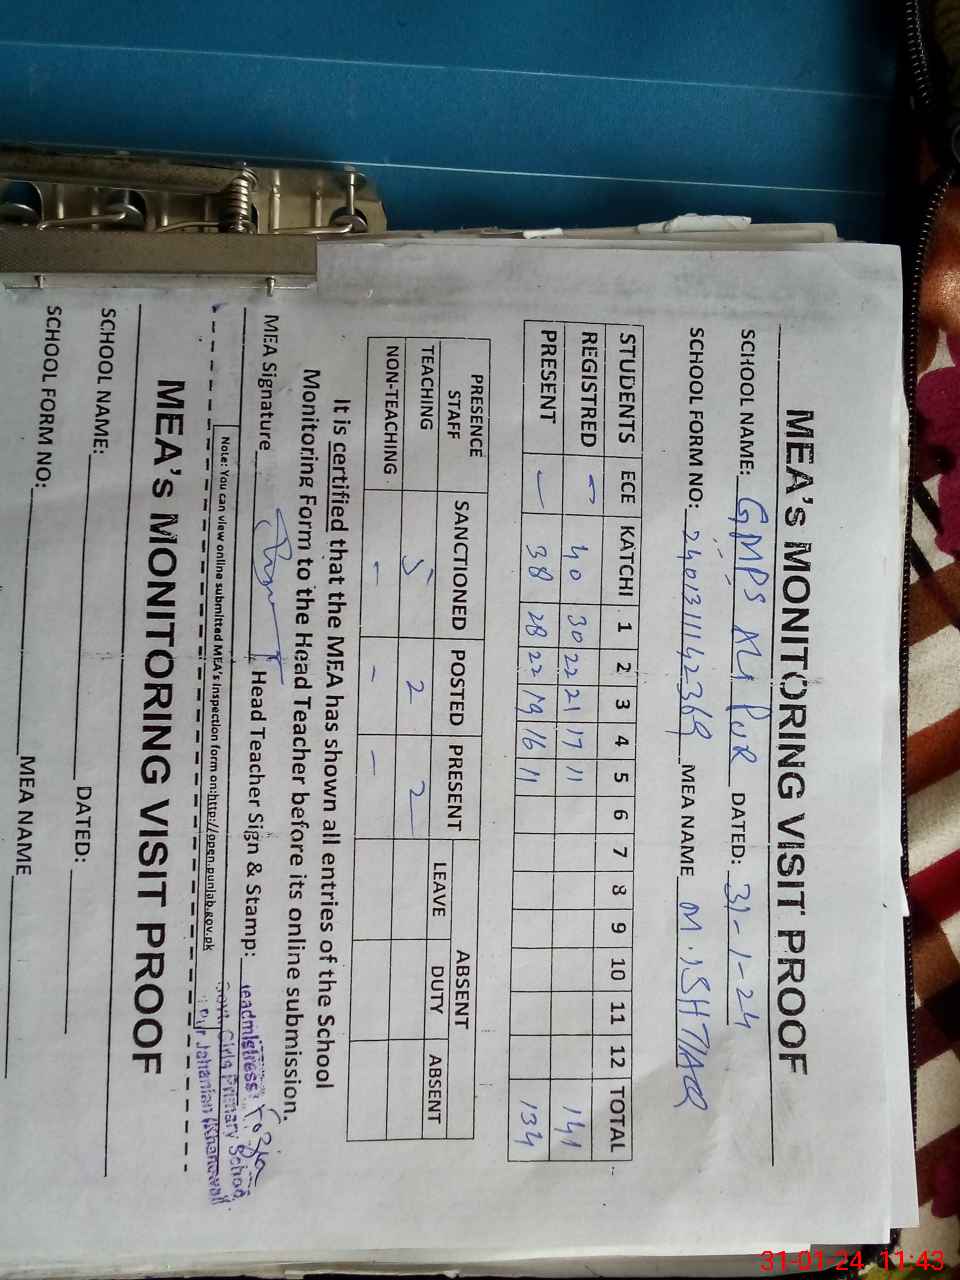 MEA's MONITORING VISIT PROOF
SCHOOL NAME: GMPS Ali PUR DATED: 31-1-24
SCHOOL FORM NO: 24013111142369 MEA NAME M. ISHTIAQ
STUDENTS ECE KATCHI 1 2 3 4 5 6 7 8 9 10 11 12 TOTAL
REGISTRED - 40 30 22 21 17 11 141
PRESENT - 38 28 22 19 16 11 134
PRESENCE STAFF SANCTIONED POSTED PRESENT ABSENT
LEAVE DUTY ABSENT
TEACHING 5 2 2
NON-TEACHING - - -
It is certified that the MEA has shown all entries of the School
Monitoring Form to the Head Teacher before its online submission.
MEA Signature Head Teacher Sign & Stamp: Fozia
eadmistress
Govt. Girls Primary School
Pur Jahanian (Khanewal)
Note: You can view online submitted MEA's inspection form on:http://open.punjab.gov.pk
MEA's MONITORING VISIT PROOF
SCHOOL NAME: DATED:
SCHOOL FORM NO: MEA NAME
31-01-24, 11:43